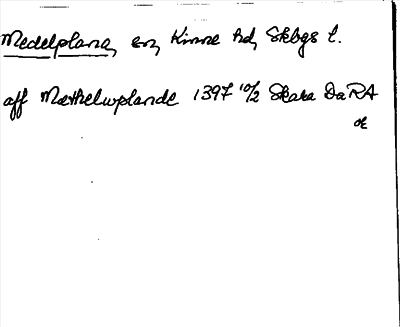 Medelplana, sn, Kinne hd, Skbgs l.
aff Mæthelwplande 1397 10/2 Skara DaRA
or